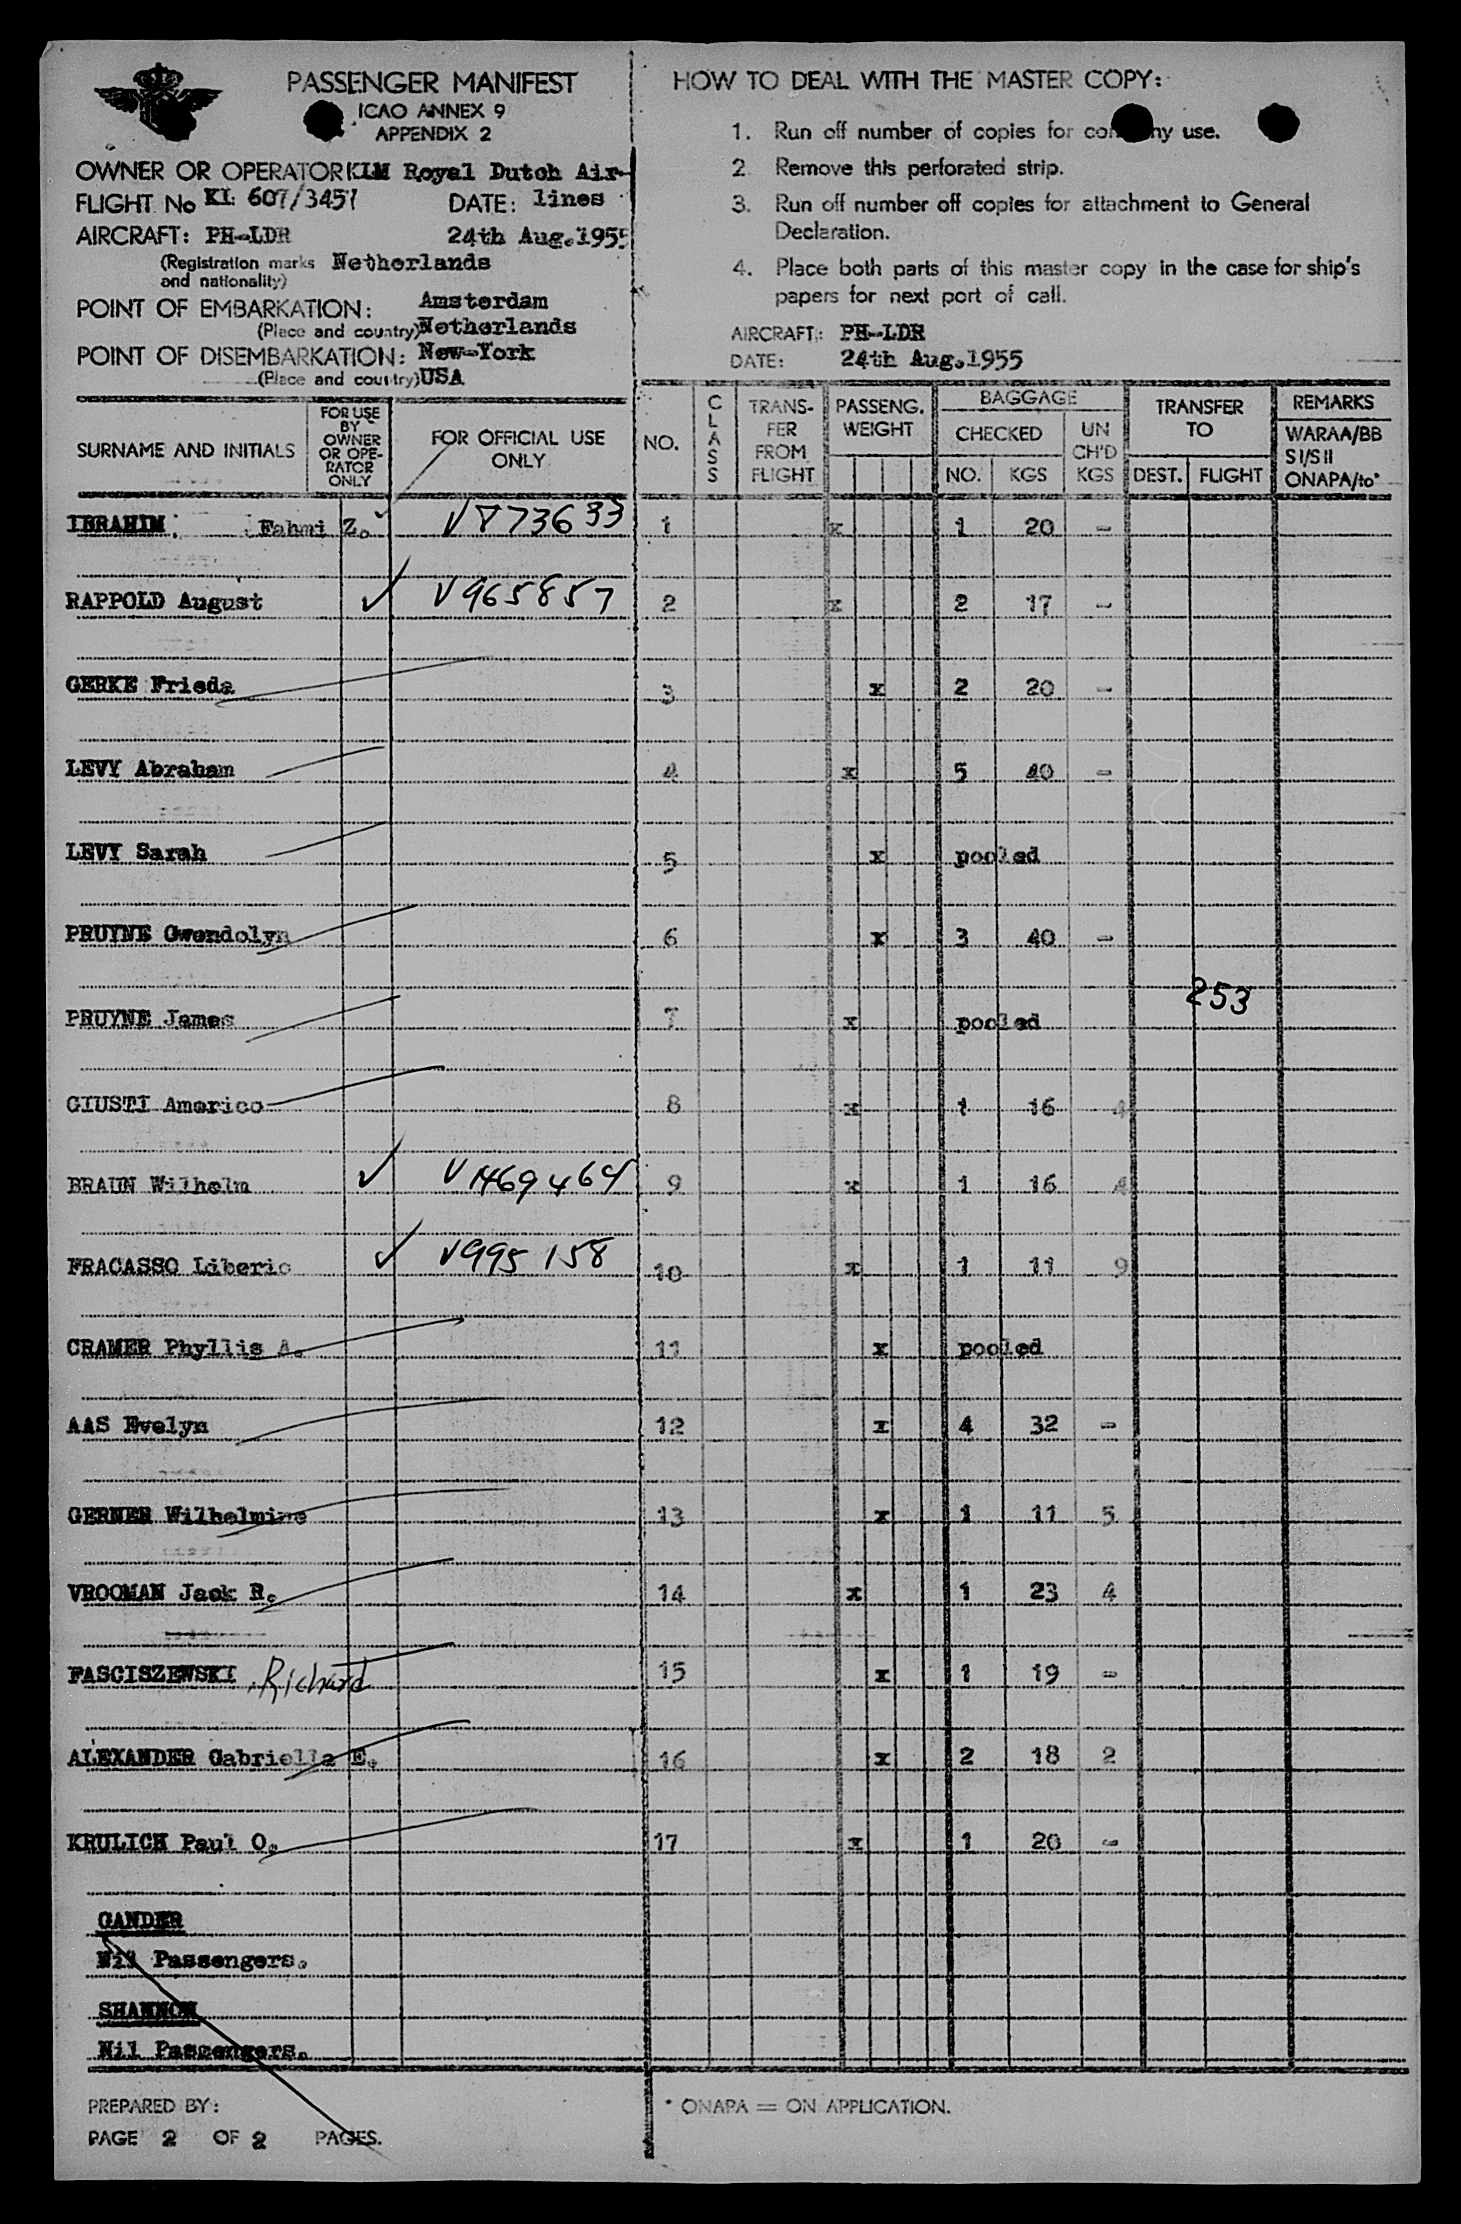 PASSENGER MANIFEST
ICAO ANNEX 9
APPENDIX 2
OWNER OR OPERATOR KLM Royal Dutch Air-
FLIGHT No KL 607/3457 DATE: lines
AIRCRAFT: PH-LDR 24th Aug.1955
(Registration marks Netherlands
and nationality)
POINT OF EMBARKATION: Amsterdam
(Place and country) Netherlands
POINT OF DISEMBARKATION: New-York
(Place and country) USA
HOW TO DEAL WITH THE MASTER COPY:
1. Run off number of copies for company use.
2 Remove this perforated strip.
3. Run off number off copies for attachment to General
Declaration.
4. Place both parts of this master copy in the case for ship's
papers for next port of call.
AIRCRAFT: PH-LDR
DATE: 24th Aug.1955
SURNAME AND INITIALS FOR USE BY OWNER OR OPE-RATOR ONLY FOR OFFICIAL USE ONLY NO. CLASS TRANS-FER FROM FLIGHT PASSENG. WEIGHT BAGGAGE CHECKED NO. KGS UN CH'D KGS TRANSFER TO DEST. FLIGHT REMARKS WARAA/BB S I/S II ONAPA/to*
IBRAHIM Fahmi Z. V773633 1 x 1 20 -
RAPPOLD August ✓ V965857 2 x 2 17 -
GERKE Frieda 3 x 2 20 -
LEVY Abraham 4 x 5 40 -
LEVY Sarah 5 x pooled
PRUYNE Gwendolyn 6 x 3 40 -
253
PRUYNE James 7 x pooled
GIUSTI Americo 8 x 1 16 4
BRAUN Wilhelm ✓ V1469464 9 x 1 16 4
FRACASSO Liberio ✓ V995158 10 x 1 11 9
CRAMER Phyllis A. 11 x pooled
AAS Evelyn 12 x 4 32 -
GERNER Wilhelmine 13 x 1 11 5
VROOMAN Jack R. 14 x 1 23 4
FASCISZEWSKI Richard 15 x 1 19 -
ALEXANDER Gabriella E. 16 x 2 18 2
KRULICH Paul O. 17 x 1 20 -
GANDER
Nil Passengers.
SHANNON
Nil Passengers.
PREPARED BY:
PAGE 2 OF 2 PAGES.
* ONAPA = ON APPLICATION.